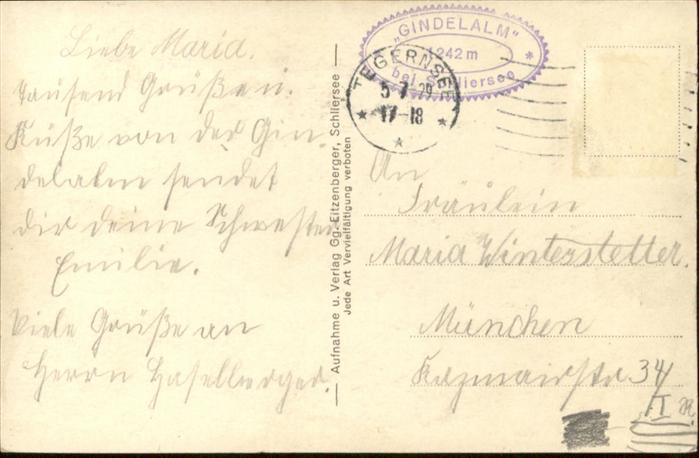 Liebe Maria.
Tausend Grüße u.
Küße von der Gin-
delalm sendet
dir deine Schwester
Emilie.
Viele Grüße an
Herrn Haselberger.
Aufnahme u. Verlag Gg. Eitzenberger, Schliersee
Jede Art Vervielfältigung verboten
„GINDELALM“
1242 m
bei Schliersee
TEGERNSEE
17-18
An
Fräulein
Maria Winterstetter.
München
Kazmairstr. 34
II